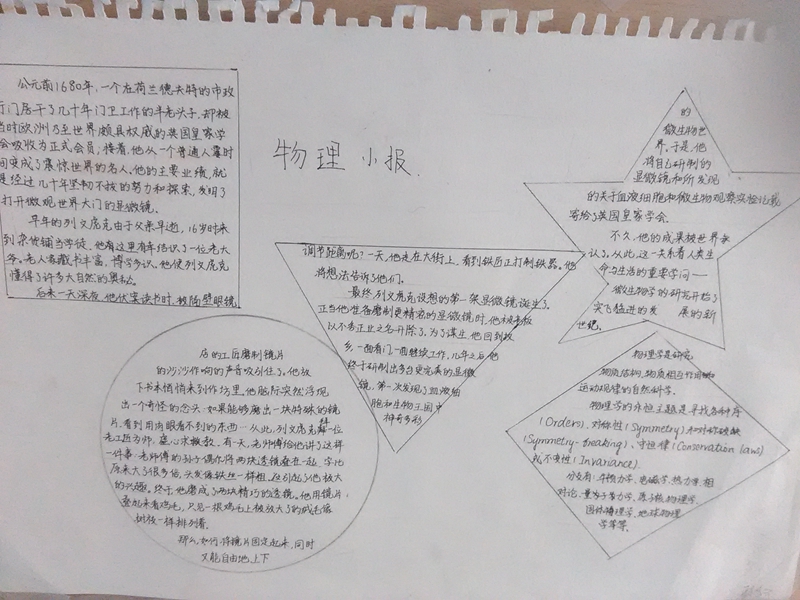 物理小报
公元前1680年,一个在荷兰德夫特的市政
厅门房干了几十年门卫工作的半老头子,却被
当时欧洲乃至世界颇具权威的英国皇家学
会吸收为正式会员,接着,他从一个普通人霎时
间变成了震惊世界的名人。他的主要业绩,就
是经过几十年坚韧不拔的努力和探索,发明了
打开微观世界大门的显微镜。
早年的列文虎克由于父亲早逝,16岁时来
到杂货铺当学徒,他在这里有幸结识了一位老大
爷。老人家藏书丰富,博学多识,他使列文虎克
懂得了许多大自然的奥秘。
后来一天深夜,他伏案读书时,被隔壁眼镜
店的工匠磨制镜片
的沙沙作响的声音吸引住了,他放
下书本悄悄来到作坊里,他脑际突然浮现
出一个奇怪的念头:如果能够磨出一块特殊的镜
片,看到用肉眼看不到的东西…从此,列文虎克拜一位
老工匠为师,虚心求教。有一天,老师傅给他讲了这样
一件事:老师傅的孙子偶尔将两块透镜叠在一起,字比
原来大了很多倍,头发像铁丝一样粗,这引起了他极大
的兴趣。终于他磨成了两块精巧的透镜。他用镜片
叠起来看鸡毛,只见一根鸡毛上被放大了的绒毛像
树枝一样排列着。
那么,如何将镜片固定起来,同时
又能自由地上下
调节距离呢?一天,他走在大街上,看到铁匠正打制铁器。他
将想法告诉了他们。
最终,列文虎克设想的第一架显微镜诞生了。
正当他准备磨制更精密的显微镜时,他被老板
以不务正业之名开除了。为了谋生,他回到故
乡,一面看门,一面继续工作,几年之后,他
终于研制出多台更完美的显微
镜,第一次发现了血液细
胞和生物王国中
神奇多彩
的
微生物世
界。于是,他
将自己研制的
显微镜和所发现
的关于血液细胞和微生物观察实验记载
寄给了英国皇家学会。
不久,他的成果被世界承
认了。从此,这一关系着人类生
命与生活的重要学问——
微生物学的研究开始了
突飞猛进的发 展的新
世纪。
物理学是研究
物质结构、物质相互作用和
运动规律的自然科学。
物理学的永恒主题是寻找各种序
(Orders)、对称性(Symmetry)和对称破缺
(Symmetry-breaking)、守恒律(Conservation laws)
或不变性(Invariance).
分支有:牛顿力学、电磁学、热力学、相
对论、量子力学、原子核物理学、
固体物理学、地球物理
学等等。